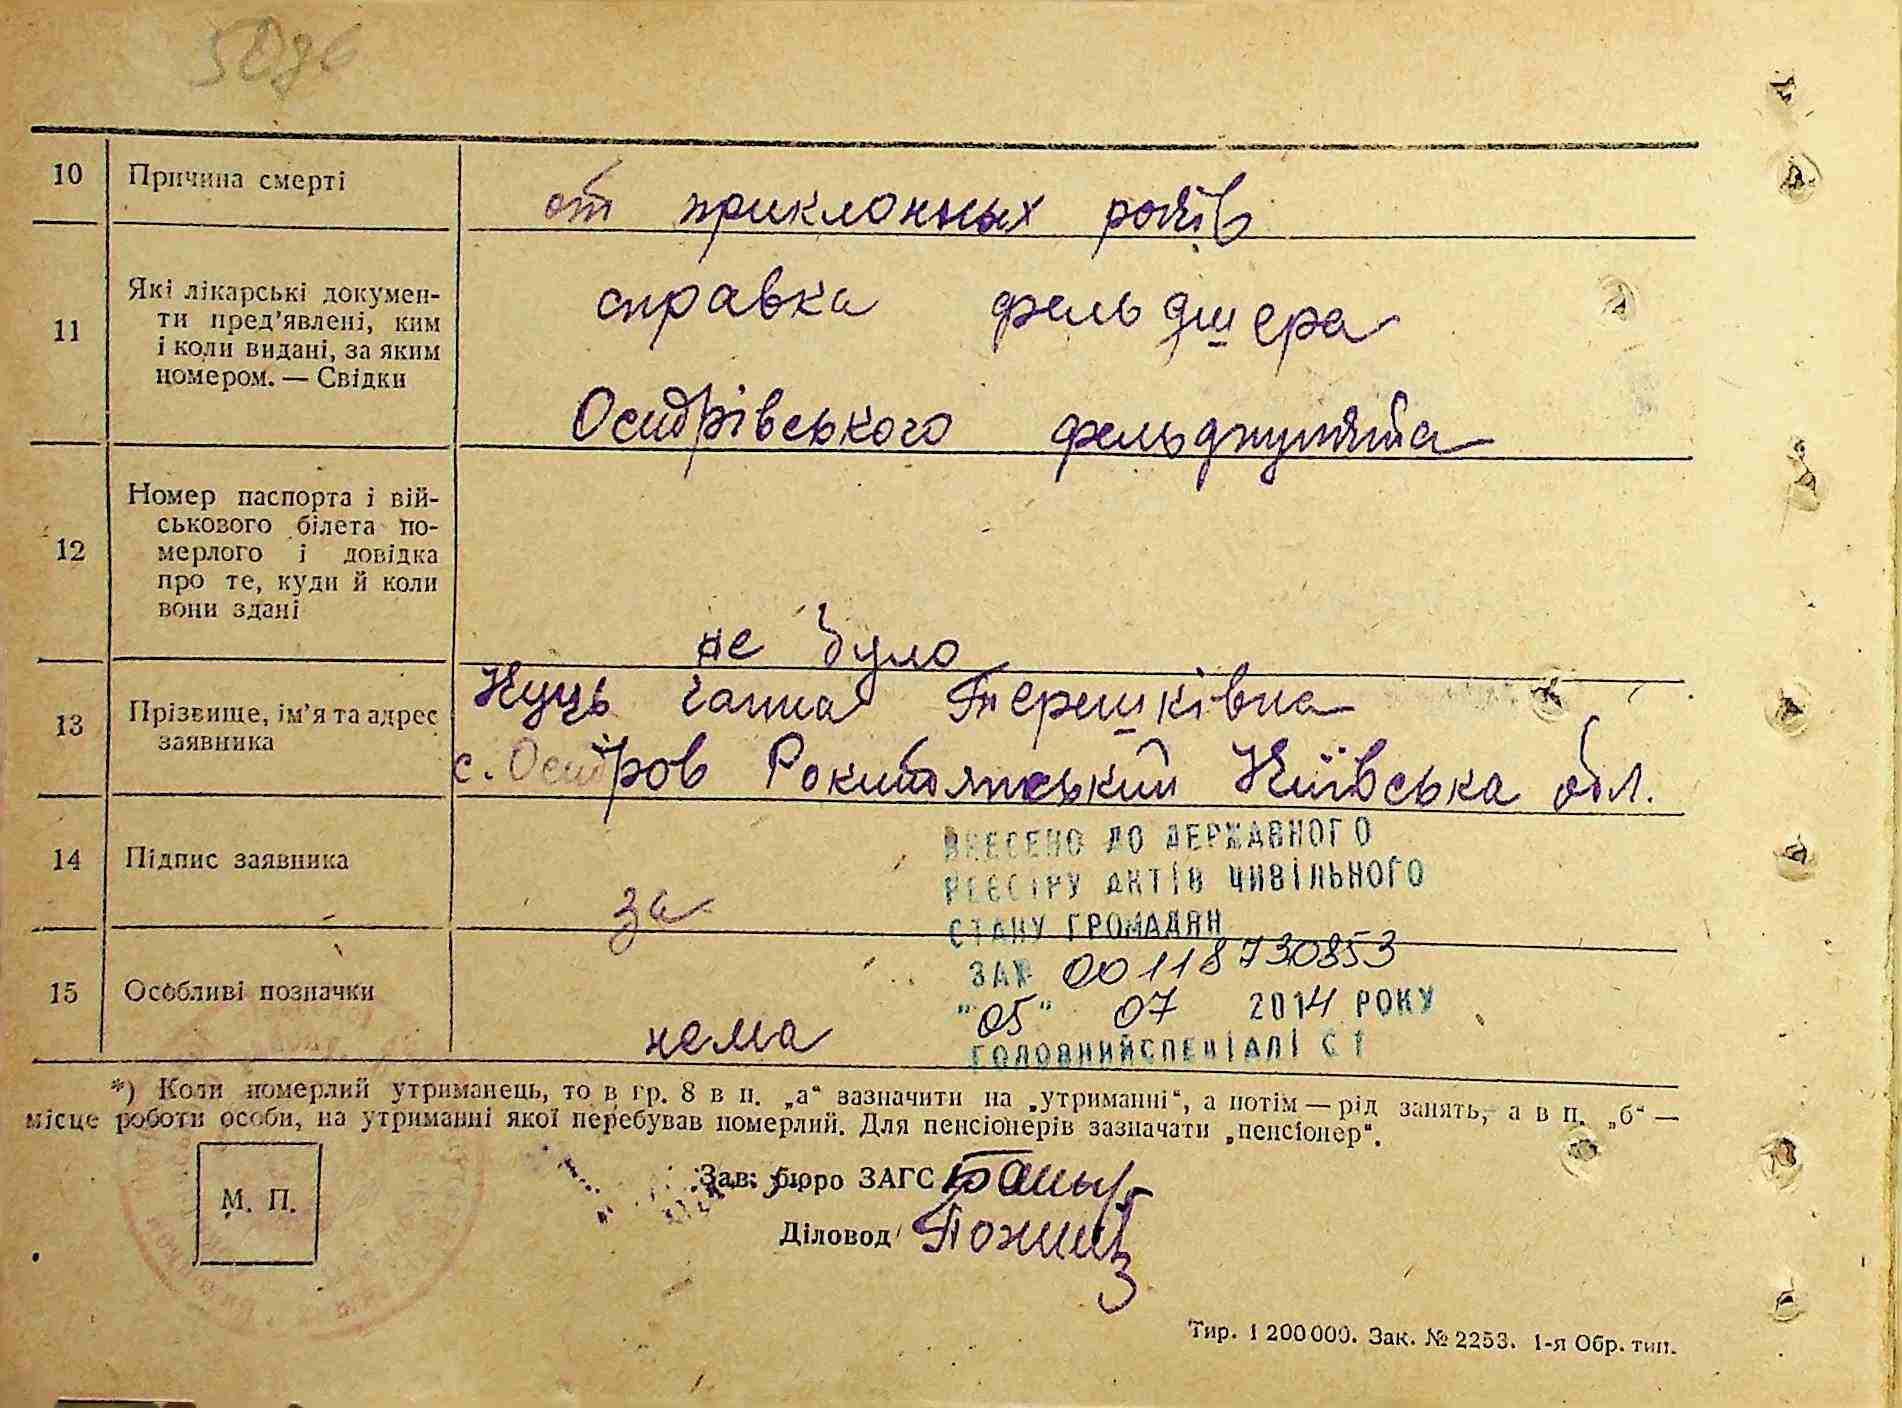 10 Причина смерті
от приклонных років
11 Які лікарські докумен-
ти пред'явлені, ким
і коли видані, за яким
номером. — Свідки
справка фельдшера
Острівського фельдпункта
12 Номер паспорта і вій-
ськового білета по-
мерлого і довідка
про те, куди й коли
вони здані
не було
13 Прізвище, ім'я та адрес
заявника
Куць Ганна Терешківна
с. Остров Рокитянський Київська обл.
14 Підпис заявника
за
ВНЕСЕНО ДО ДЕРЖАВНОГО
РЕЄСТРУ АКТІВ ЦИВІЛЬНОГО
СТАНУ ГРОМАДЯН
ЗА № 00118730853
15 Особливі позначки
нема
"05" 07 2014 РОКУ
ГОЛОВНИЙ СПЕЦІАЛІСТ
*) Коли померлий утриманець, то в гр. 8 в п. „а“ зазначити на „утриманні“, а потім — рід занять, а в п. „б“ —
місце роботи особи, на утриманні якої перебував померлий. Для пенсіонерів зазначати „пенсіонер“.
М. П.
Зав. бюро ЗАГС
Діловод
Тир. 1 200 000. Зак. № 2253. 1-я Обр. тип.